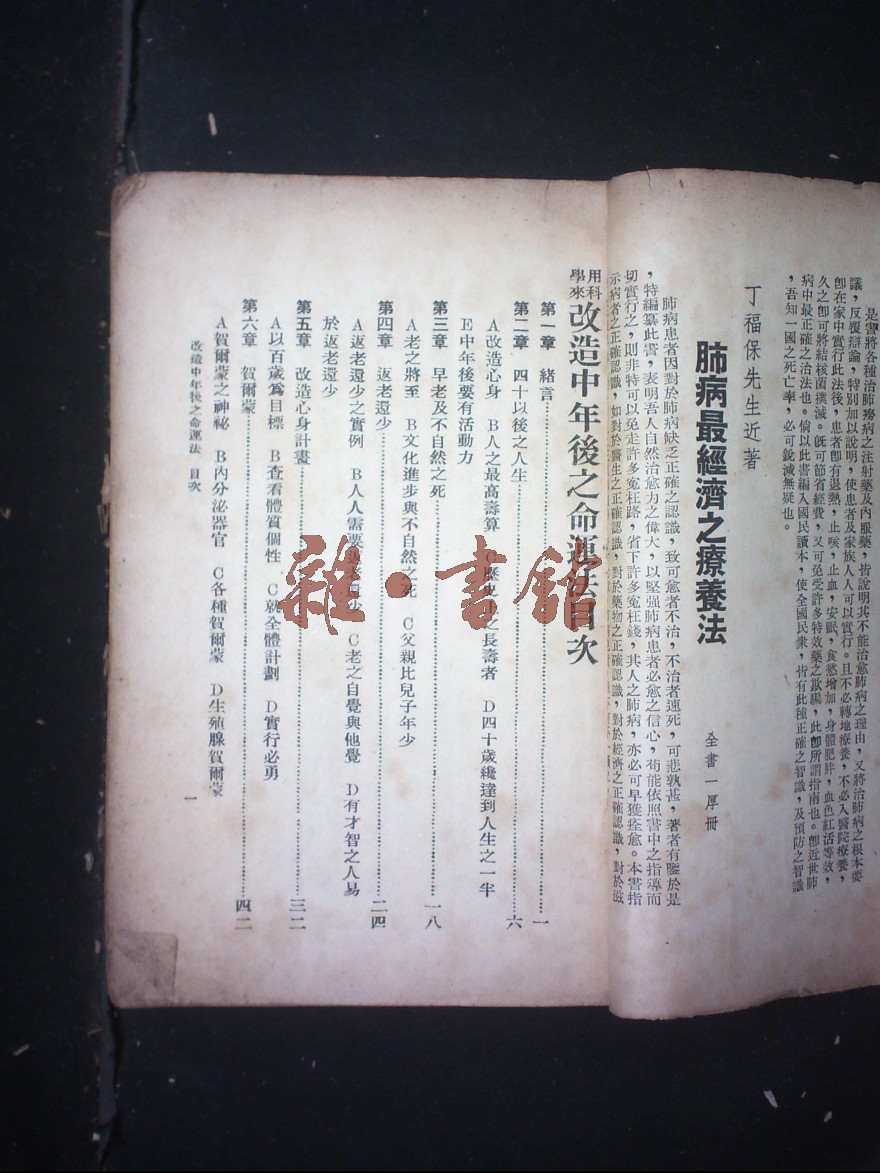 丁福保先生近著
肺病最經濟之療養法
全書一厚冊
肺病患者因對於肺病缺乏正確之認識，致可愈者不治，不治者速死，可悲孰甚，著者有鑒於是
，特編纂此書，表明吾人自然治愈力之偉大，以堅强肺病患者必愈之信心，苟能依照書中之指導而
切實行之，則非特可以免走許多冤枉路，省下許多冤枉錢，其人之肺病，亦必可早獲痊愈。本書指
示病者之正確認識，如對於醫生之正確認識，對於藥物之正確認識，對於經濟之正確認識，對於滋
是書將各種治肺癆病之注射藥及內服藥，皆說明其不能治愈肺病之理由，又將治肺病之根本要
議，反覆辯論，特別加以說明，使患者及家族人人可以實行。且不必轉地療養，不必入醫院療養，
卽在家中實行此法後，患者卽有退熱，止咳，止血，安眠，食慾增加，身體肥胖，血色紅活等效，
久之卽可將結核菌撲滅。旣可節省經費，又可免受許多特效藥之欺騙，此卽所謂指南也。卽近世肺
病中最正確之治法也。倘以此書編入國民讀本，使全國民衆，皆有此種正確之智識，及預防之智識
，吾知一國之死亡率，必可銳減無疑也。
用科學來改造中年後之命運法目次
第一章 緒言 一
第二章 四十以後之人生 六
A改造心身 B人之最高壽算 C歷史上之長壽者 D四十歲纔達到人生之一半
E中年後要有活動力
第三章 早老及不自然之死 一八
A老之將至 B文化進步與不自然之死 C父親比兒子年少
第四章 返老還少 二四
A返老還少之實例 B人人需要返老還少 C老之自覺與他覺 D有才智之人易
於返老還少
第五章 改造心身計畫 三二
A以百歲爲目標 B查看體質個性 C就全體計劃 D實行必勇
第六章 賀爾蒙 四二
A賀爾蒙之神祕 B內分泌器官 C各種賀爾蒙 D生殖腺賀爾蒙
改造中年後之命運法 目次
一
雜·書館